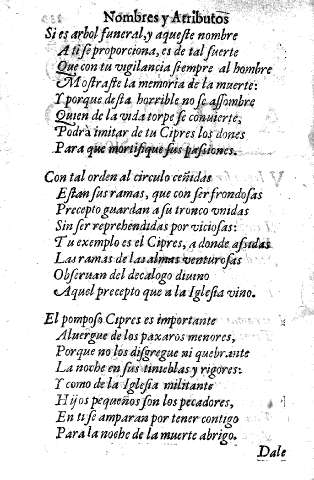 Nombres y Atributos
Si es arbol funeral, y aqueste nombre
A ti se proporciona, es de tal suerte
Que con tu vigilancia siempre al hombre
Mostraste la memoria de la muerte:
Y porque desta horrible no se assombre
Quien de la vida torpe se conuierte,
Podrà imitar de tu Cipres los dones
Para que mortifique sus passiones.
Con tal orden al circulo ceñidas
Estan sus ramas, que con ser frondosas
Precepto guardan a su tronco vnidas
Sin ser reprehendidas por viciosas:
Tu exemplo es el Cipres, a donde assidas
Las ramas de las almas venturosas
Obseruan del decalogo diuino
Aquel precepto que a la Iglesia vino.
El pomposo Cipres es importante
Aluergue de los paxaros menores,
Porque no los disgregue ni quebrante
La noche en sus tinieblas y rigores:
Y como de la Iglesia militante
Hijos pequeños son los pecadores,
En ti se amparan por tener contigo
Para la noche de la muerte abrigo.
Dale